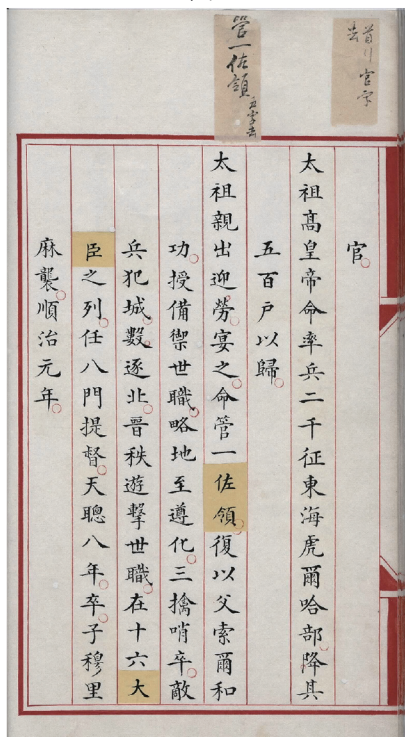 首行官字
去
管一佐領五字去
官
太祖高皇帝命率兵二千征東海虎爾哈部降其
五百戶以歸
太祖親出迎勞宴之命管一佐領復以父索爾和
功授備禦世職略地至遵化三擒哨卒敵
兵犯城數逐北晉秩遊擊世職在十六大
臣之列任八門提督天聰八年卒子穆里
麻襲順治元年